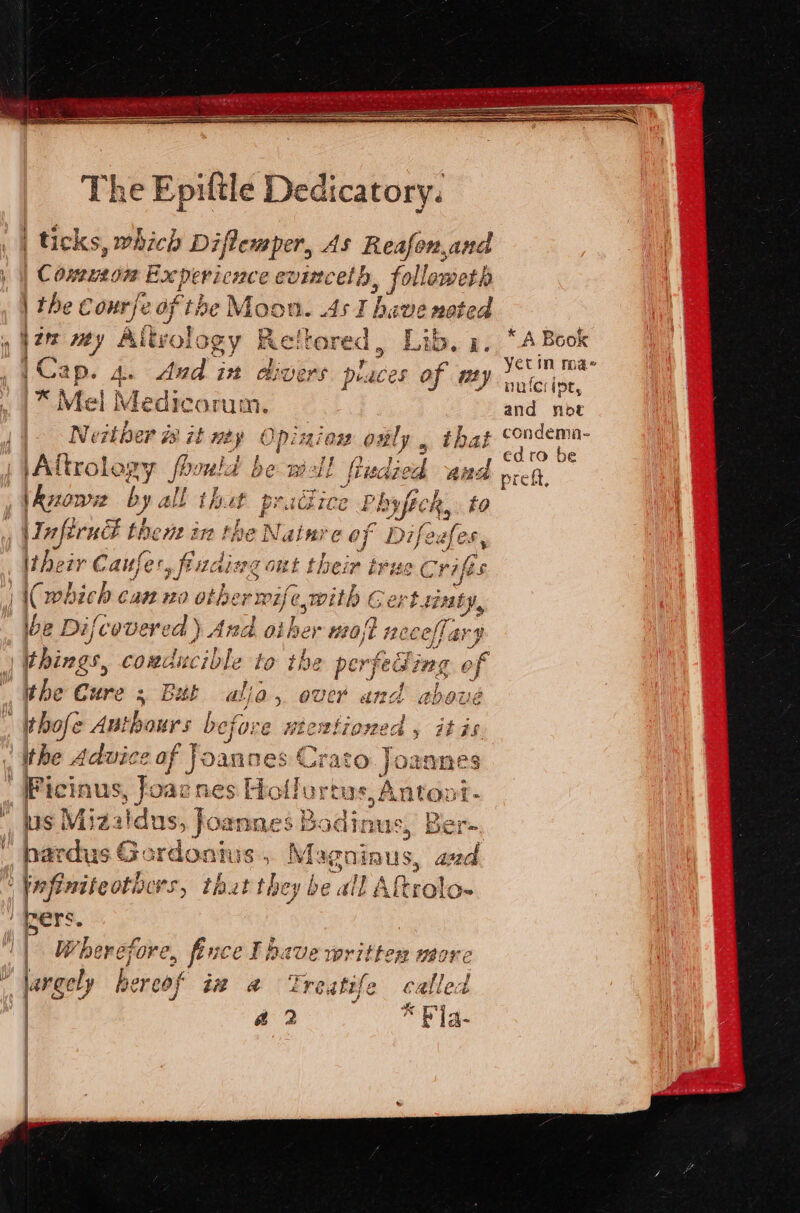 The Epiſtle Dedicatory.
ticks, which Diſtemper, As Reaſon, and
Common Experience evinceth, followeth
the Courſe of the Moon. As I have noted
in my Aſtrology Reſtored, Lib. 1.
Cap. 4. And in divers places of my
* Mel Medicorum.
* A Book
yet in ma-
nuſcript,
and not
condemn-
ed to be
preſt.
Neither is it my Opinion only, that
Aſtrology ſhould be well ſtudied and
known by all that practice Phyſick, to
Inſtruct them in the Nature of Diſeaſes,
their Cauſes, finding out their true Criſis
(which can no otherwiſe, with Certainty,
be Diſcovered) And other moſt neceſſary
things, conducible to the perfecting of
the Cure; But alſo, over and above
thoſe Authours before mentioned, it is
the Advice of Joannes Crato Joannes
Ficinus, Joannes Hoſfurtus, Antoni-
us Mizaldus, Joannes Bodinus, Ber-
nardus Gordonius, Magninus, and
infinite others, that they be all Aſtrolo-
gers.
Wherefore, ſince I have written more
largely hereof in a Treatiſe called
a 2 * Fla-